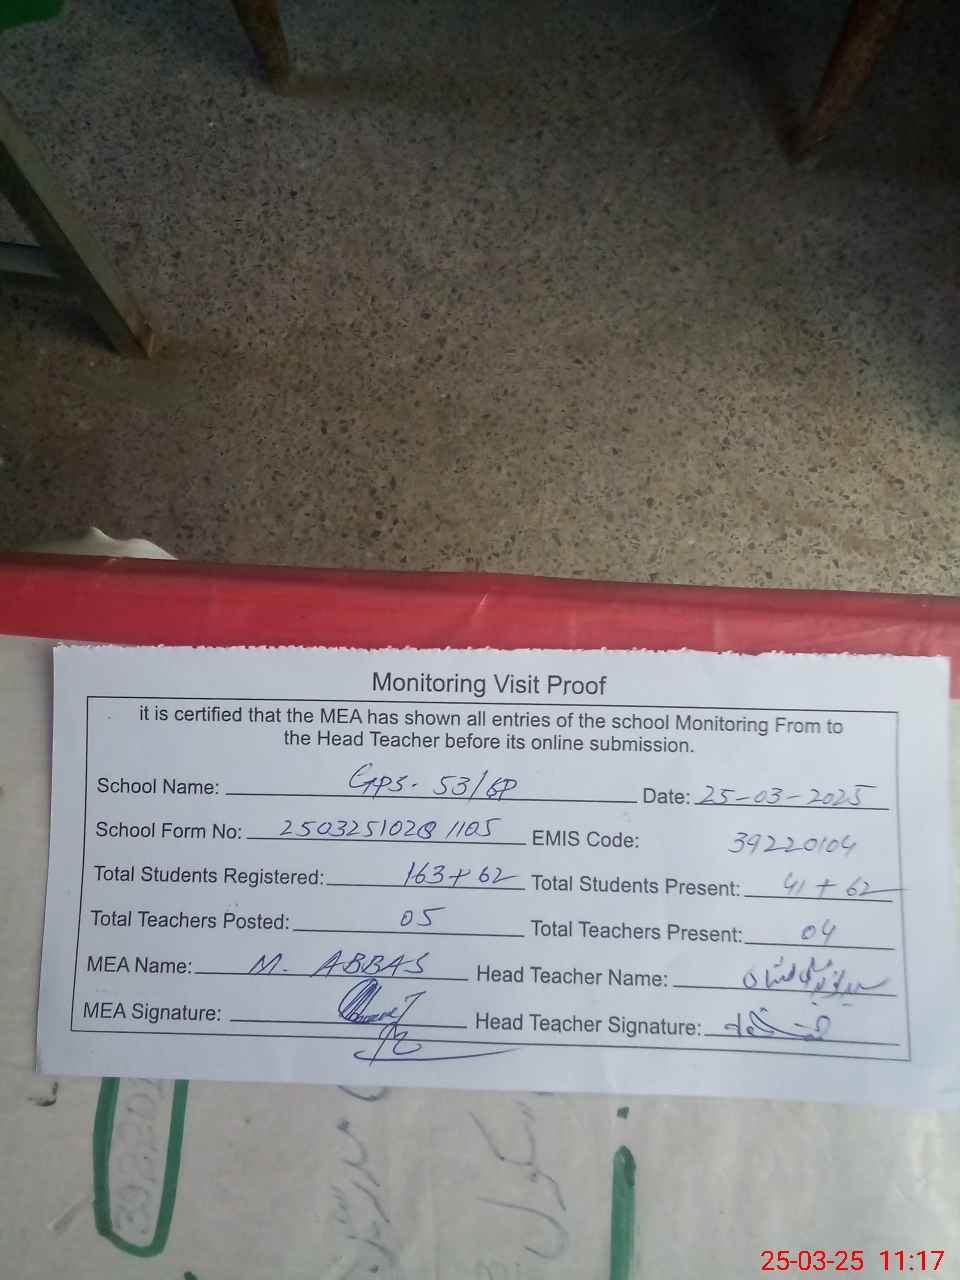 Monitoring Visit Proof
it is certified that the MEA has shown all entries of the school Monitoring From to
the Head Teacher before its online submission.
School Name: GPS. 53/GP Date: 25-03-2025
School Form No: 2503251028 1105 EMIS Code: 39220104
Total Students Registered: 163+62 Total Students Present: 41+62
Total Teachers Posted: 05 Total Teachers Present: 04
MEA Name: M. ABBAS Head Teacher Name:
MEA Signature: Head Teacher Signature:
25-03-25 11:17